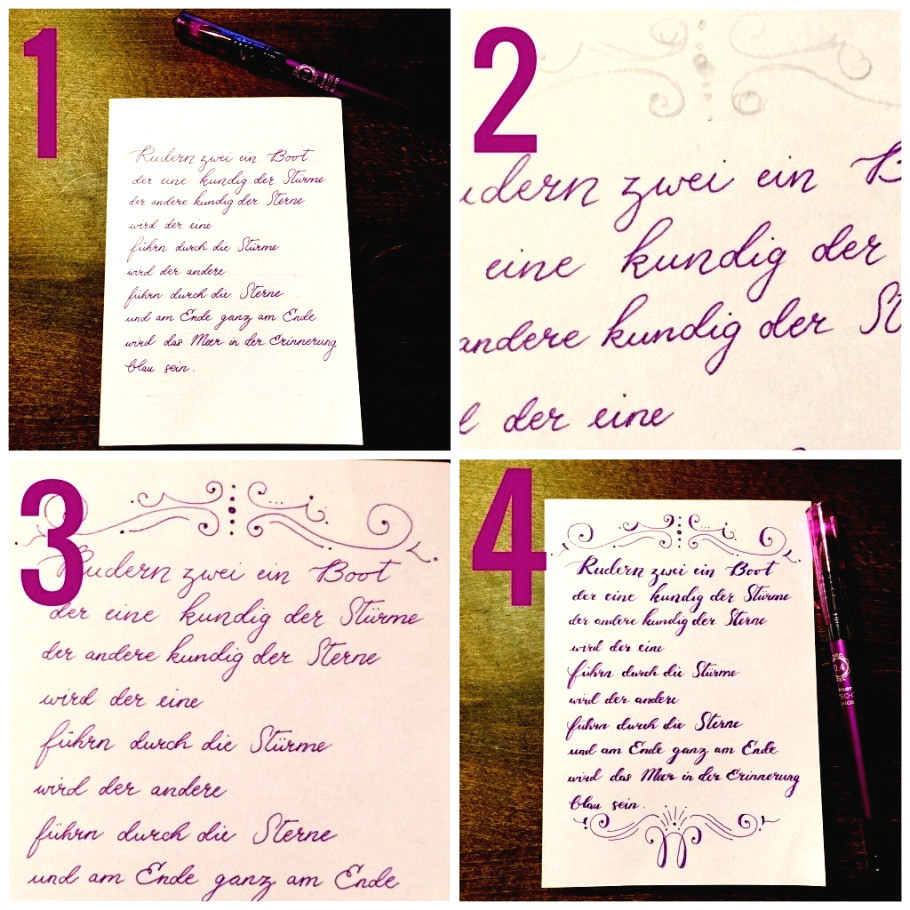 1
Rudern zwei ein Boot
der eine kundig der Stürme
der andere kundig der Sterne
wird der eine
führn durch die Stürme
wird der andere
führn durch die Sterne
und am Ende ganz am Ende
wird das Meer in der Erinnerung
blau sein.
2
udern zwei ein B
eine kundig der
andere kundig der St
d der eine
3
Rudern zwei ein Boot
der eine kundig der Stürme
der andere kundig der Sterne
wird der eine
führn durch die Stürme
wird der andere
führn durch die Sterne
und am Ende ganz am Ende
4
Rudern zwei ein Boot
der eine kundig der Stürme
der andere kundig der Sterne
wird der eine
führn durch die Stürme
wird der andere
führn durch die Sterne
und am Ende ganz am Ende
wird das Meer in der Erinnerung
blau sein.
0.4